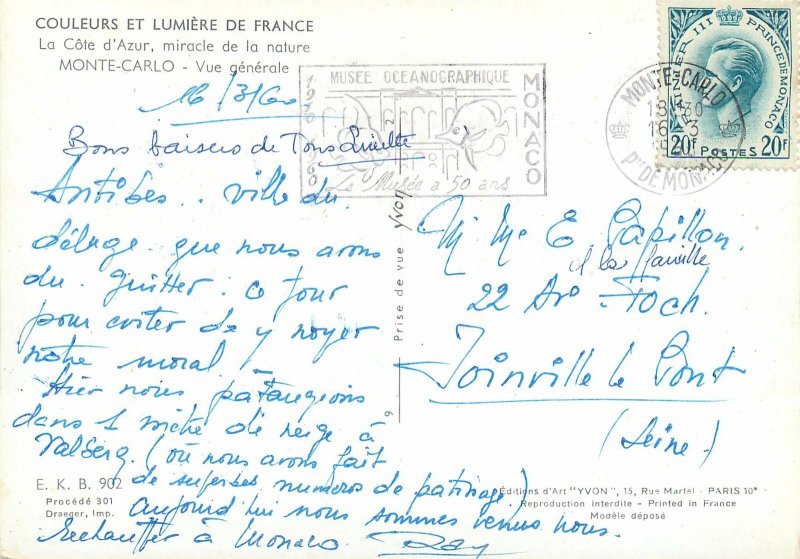 COULEURS ET LUMIÈRE DE FRANCE
La Côte d'Azur, miracle de la nature
MONTE-CARLO - Vue générale
16/3/60
Bons baisers de Tous
Antibes. ville du
déluge que nous avons
du quitter. ce jour
pour eviter de y noyer
notre moral!
Hier nous pataugeions
dans 1 mètre de neige à
Valberg. (où nous avons fait
de superbes numeros de patinage)
aujourd'hui nous sommes venus nous
rechauffer à Monaco
E. K. B. 902
Procédé 301
Draeger, Imp.
MUSEE OCEANOGRAPHIQUE
1910 1960
MONACO
Le Musée a 50 ans
MONTE-CARLO
16 - 3
PTE DE MONACO
RAINIER III PRINCE DE MONACO
20F POSTES 20F
Prise de vue Yvon
9
M. Me E Papillon.
et la famille
22 Ave Foch.
Joinville le Pont
(Seine)
Éditions d'Art "YVON", 15, Rue Martel - PARIS 10e
Reproduction interdite - Printed in France
Modèle déposé